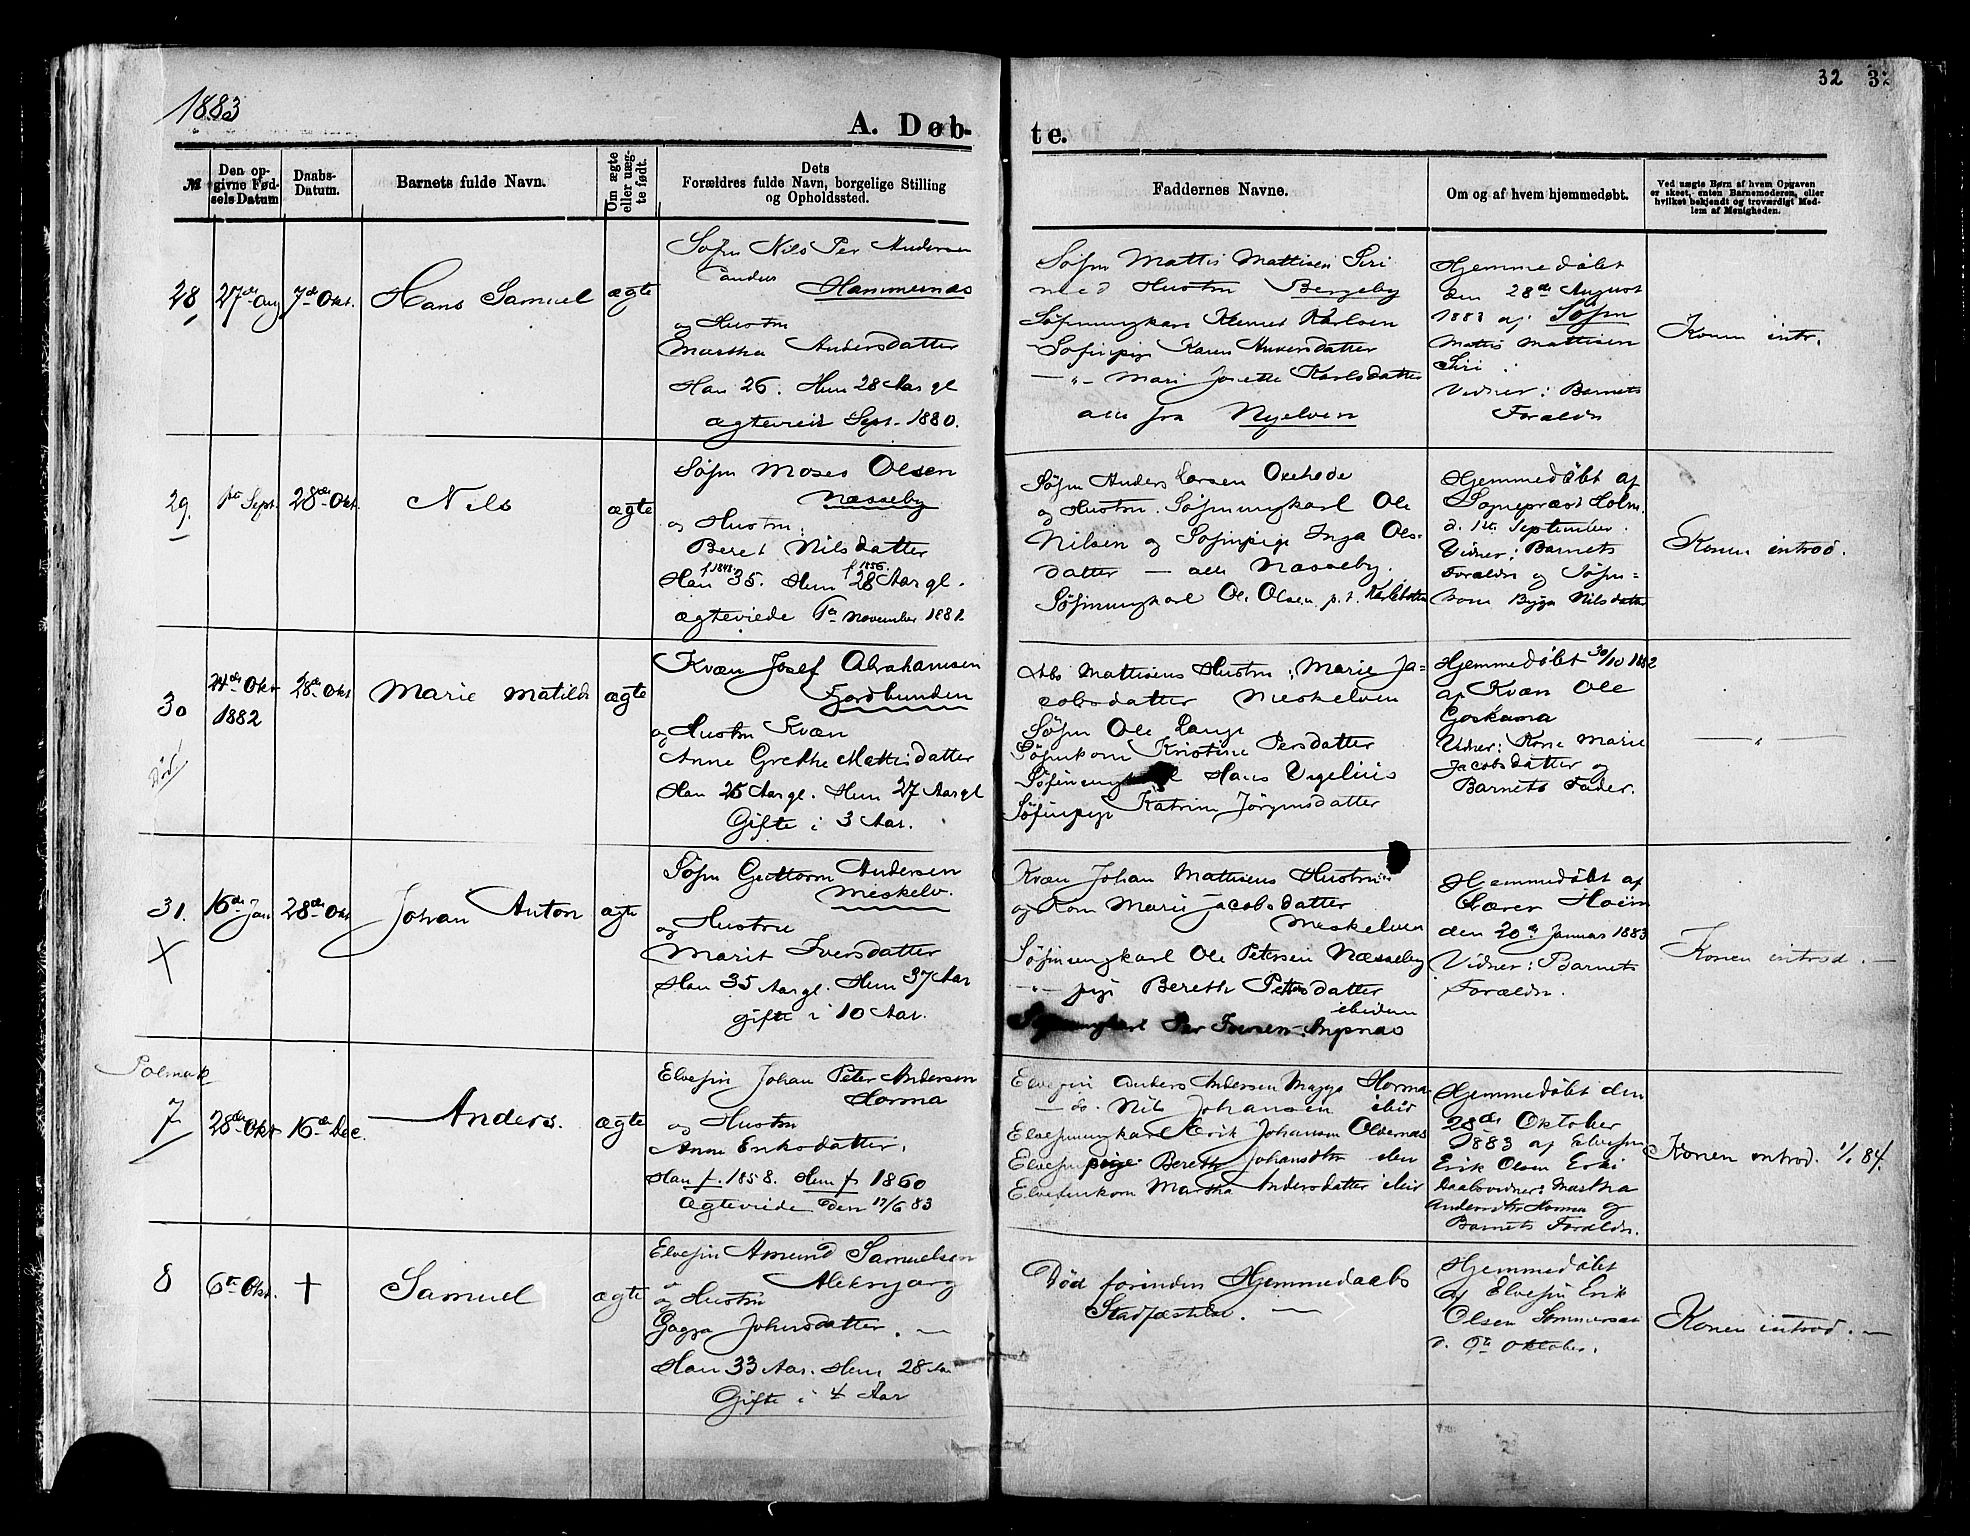 1883
32 32
A. Døb-
te.
№
Den op-
givne Fød-
sels Datum
Daabs-
Datum.
Barnets fulde Navn.
Om ægte
eller uæg-
te født.
Dets
Forældres fulde Navn, borgelige Stilling
og Opholdssted.
Faddernes Navne.
Om og af hvem hjemmedøbt.
Ved uægte Børn af hvem Opgaven
er skeet, enten Barnemoderen, eller
hvilket bekjendt og troværdigt Med-
lem af Menigheden.
28
27de Aug
7de Okt.
Hans Samuel
ægte
Søfin Nils Per Andersen
Hammernæs
og Hustru
Martha Andersdatter
Han 26. Hun 28 Aar gl
ægteviet Sept. 1880.
Søfin Mattis Mattisen Siri
med Hustru Bergeby
Søfinungkarl Klemet Karlsen
Søfinpige Karen Andersdatter
— " — Mari Josette Karlsdatter
alle fra Nyelven
Hjemmedøbt
den 28de August
1883 af Søfin
Mattis Mattisen
Siri
Vidner: Barnets
Forældre
Konen intr.
29.
1ste Sept.
28de Okt.
Nils
ægte
Søfin Moses Olsen
Næsseby
og Hustru
Beret Nilsdatter
f. 1848. f 1856.
Han 35. Hun 28 Aar gl.
ægteviede 6te November 1881.
Søfin Anders Larsen
og Hustru. Søfinungkarl Ole
Nilsen og Søfinpige Inga Ols-
datter — alle Næsseby.
Søfinungkarl Ole Olsen p. t. Karlebotn
Hjemmedøbt af
Sognepræst Holm.
d. 1ste September.
Vidner: Barnets
Forældre og Søfin-
kone Nilsdatter
Konen introd.
30
Død
24de Okt
1882
28de Okt
Marie Matilde
ægte
Kvæn Josef Abrahamsen
Fjordbunden
og Hustru Kvæn
Anne Grethe Mattisdatter
Han 25 Aar gl. Hun 27 Aar gl
Gifte i 3 Aar.
Mattisens Hustru; Marie Ja-
cobsdatter Meskelven
Søfin Ole Lange
Søfinkone Kristine Persdatter
Hans Vigelius
Søfinpige Katrine Jörgensdatter
Hjemmedøbt 30/10 1882
af Kvæn Ole
Goskama
Vidner: Kone Marie
Jacobsdatter og
Barnets Fader.
— " —
31.
X
16de Jan
28de Okt
Johan Anton
ægte
Søfin Guttorm Andersen
Meskelv.
og Hustru
Marit Iversdatter
Han 35 Aar gl. Hun 37 Aar
gifte i 10 Aar.
Kvæn Johan Mattisens Hustru
og Kone Marie Jacobsdatter
Meskelven
Søfinungkarl Ole Petersen Næsseby
— " — pige Berethe Petersdatter
ibidem
Per Iversen Angsnæs
Hjemmedøbt af
Lærer Holm
den 20de Januar 1883
Vidner: Barnets
Forældre.
Konen introd. —
Polmak
7
28de Okt
16de Dec.
Anders.
ægte
Elvefin Johan Peter Andersen
Horma
og Hustru
Anne Eriksdatter.
Han f. 1858. Hun f. 1860
Ægteviede den 17/6 83
Elvefin Anders Andersen Horma
— do. Nils Johansen ibid
Elvefinungkarl Erik Johansen
Elvefinpige Berethe Johansdtr
Elvefinkone Martha Andersdatter ibid
Hjemmedøbt den
28de Oktober
1883 af Elvefin
Erik Olsen Erki
Daabsvidner: Martha
Andersdtr Horma og
Barnets Forældre.
Konen introd. 1/1 84.
8
6te Okt.
†
Samuel
ægte
Elvefin Amund Samuelsen
og Hustru
Johnsdatter. —
Han 33 Aar. Hun 28 Aar
Gifte i 4 Aar
Død forinden Hjemmedaabs
Stadfæstelse. —
Hjemmedøbt
af Elvefin Erik
Olsen
d. 9de Oktober.
Konen introd. —